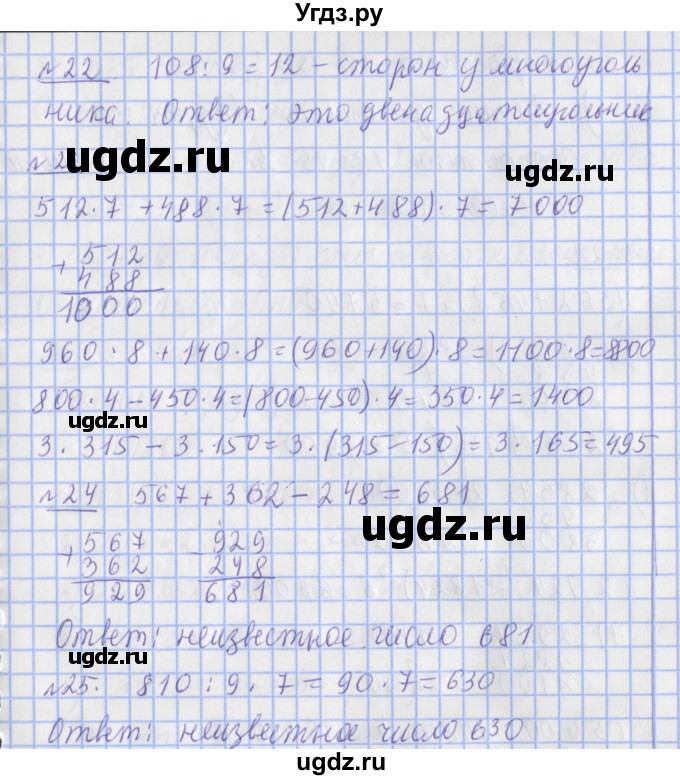 Угдз.ру
№22 108:9=12 – сторон у многоуголь
ника. Ответ: это двенадцатиугольник
№2
ugdz.ru
ugdz.ru
512·7+488·7=(512+488)·7=7000
+512
488
1000
960·8+140·8=(960+140)·8=1100·8=8800
800·4-450·4=(800-450)·4=350·4=1400
ugdz.ru
3·315-3·150=3·(315-150)=3·165=495
№24 567+362-248=681
ugdz.ru
+567 -929
362 248
929 681
Ответ: неизвестное число 681
ugdz.ru
№25. 810:9·7=90·7=630
Ответ: неизвестное число 630
ugdz.ru
ugdz.ru